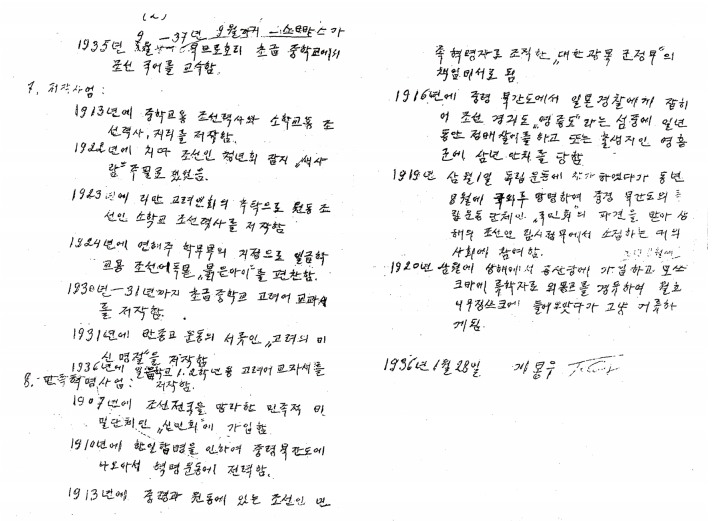 (2)
9 —37년 9월까지
1935년 초급 중학교에서
조선 국어를 교수함.
7. 저작사업:
1913년에 중학교용 조선력사와 소학교용 조
선력사, 지리를 저작함.
1922년에 치따 조선인 청년회 잡지 „새사
람“ 주필로 있었음.
1923년에 고려 의 촉탁으로 원동 조
선인 소학교 조선력사를 저작함
1924년에 연해주 학무부의 지정으로 일급학
교용 조선어 „붉은아이“를 편찬함.
1930년—31년까지 초급중학교 고려어 교과서
를 저작함.
1931년에 반종교 운동의 서류인 „고려의 미
신명절“을 저작함
1936년에 학교 1.2학년용 고려어 교과서를
저작함.
8. 혁명사업:
1907년에 조선전국을 망라한 민족적 비
밀단체인 „신민회“에 가입함
1910년에 한일합병을 인하여 중령북간도에
나와서 혁명운동에 전력함.
1913년에 중령과 원동에 있는 조선인 민
족혁명자로 조직한 „대한광복군정부“의
책임비서로 됨.
1916년에 중령 북간도에서 일본 경찰에게 잡히
어 조선 경긔도 „영종도“라는 섬중에 일년
동안 정배살이를 하고 또는 출생지인 영흥
군에 삼년 안치를 당함.
1919년 삼월 1일 독립운동에 참가하였다가 동년
8월에 망명하여 중령 북간도의
립운동 단체인 „국민회“의 파견을 받아 상
해의 조선인 림시정부에서 소집하는
사회에 참여함.
1920년 삼월에 상해에서 공산당에 가입하고 모쓰
크바에 류학자로 경유하여 월호
네우징쓰크에 들어왔다가 그냥 거류하
게됨.
1936년 1월 28일 계봉우